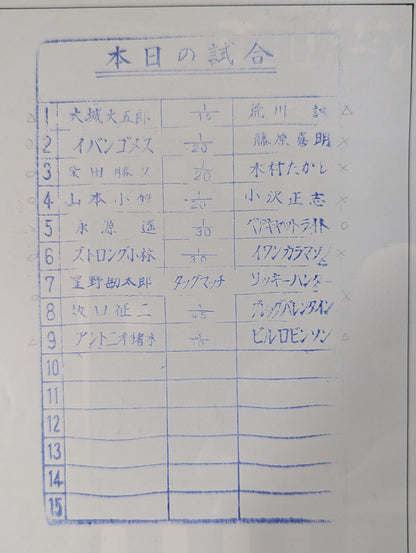 本日の試合
△ 1 大城大五郎 1/15 荒川 誠 △
○ 2 イバンゴメス 1/20 藤原喜明 ×
○ 3 柴田勝久 1/20 木村たかし ×
○ 4 山本小鉄 1/20 小沢正志 ×
× 5 永源遥 1/30 ベアキャットライト ○
○ 6 ストロング小林 1/30 イワンカラマゾフ ×
7 星野勘太郎 タッグマッチ リッキーハンター
8 坂口征二 1/45 バレンタイン ×
△ 9 アントニオ猪木 ビルロビンソン △
10
11
12
13
14
15